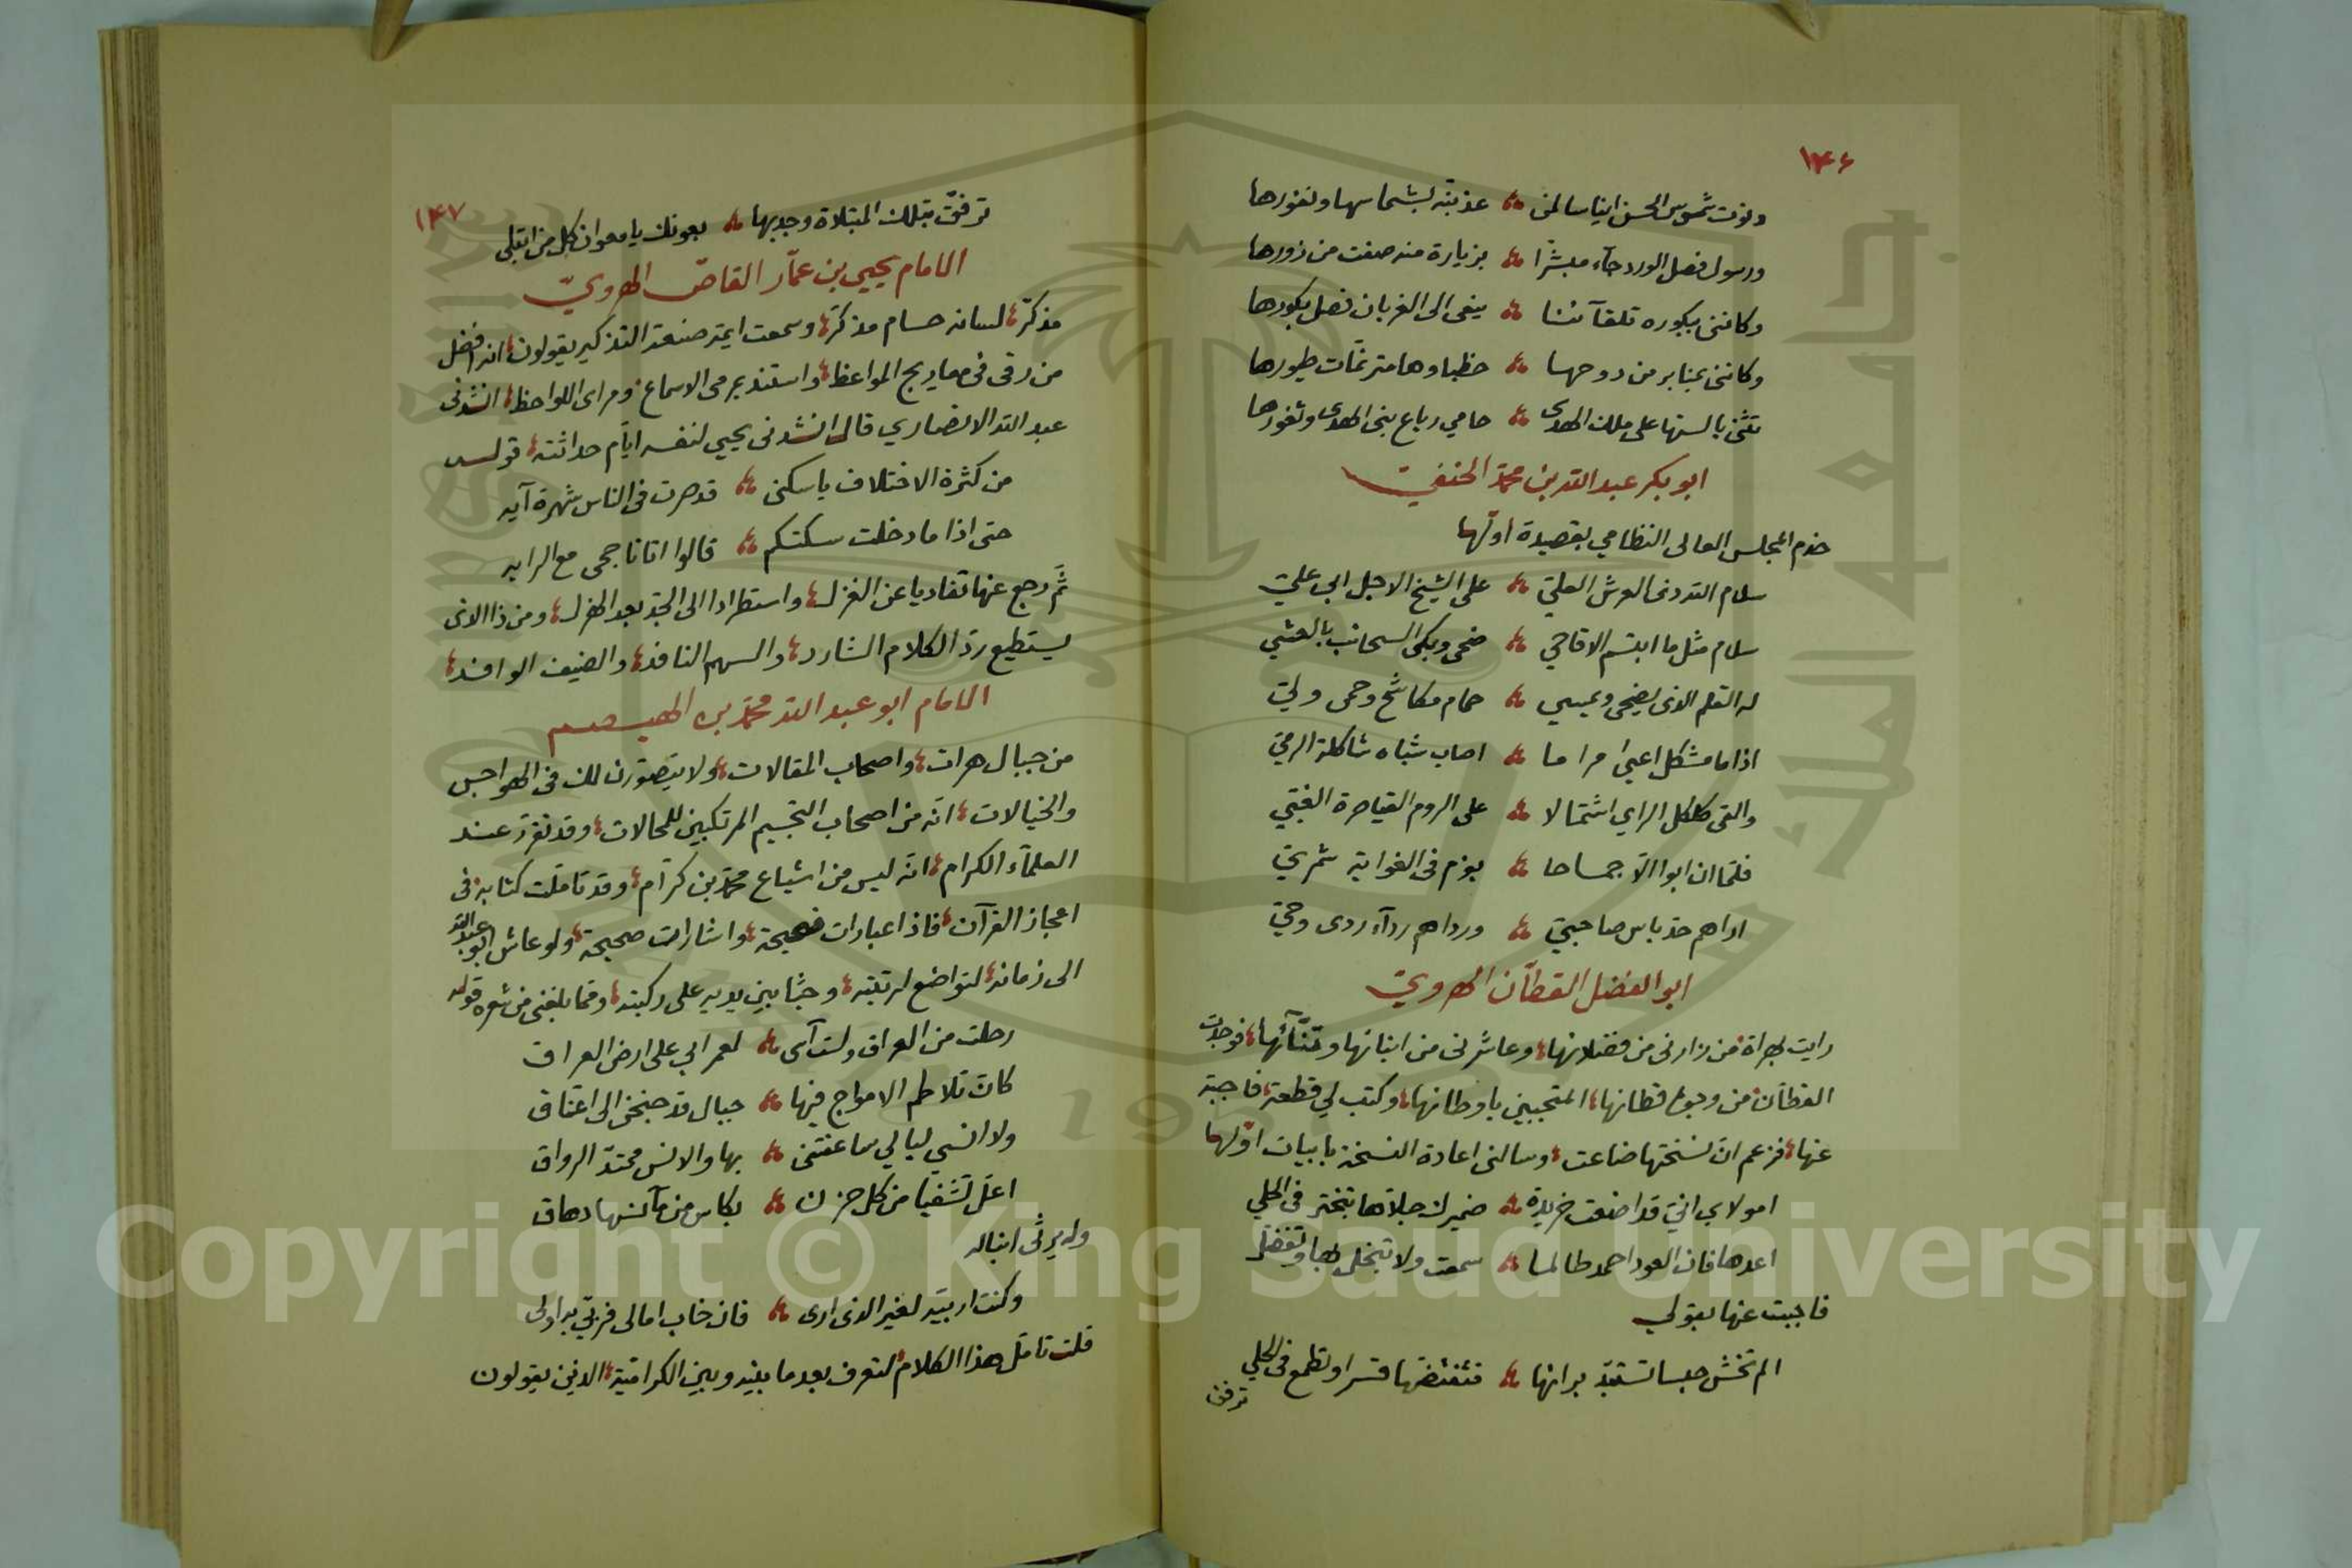 ١٤٦
ودنت شموس الحسن ايناسا لمن ؞ عذبته بشماسها ونفورها
ورسول فصل الورد جآء مبشرا ؞ بزيارة منه صفت من زورها
وكانني ببكوره تلقآئنا ؞ ينعى الى الغربان فصل بكورها
وكانني بمنابر من دوحها ؞ خطباوها مترنمات طيورها
تثني بالسنها على ملك الهدى ؞ حامي رباع بني الهدى وثغورها
ابو بكر عبد الله بن محمد الحنفي
خدم المجلس العالى النظامي بقصيدة اولها
سلام الله ذى العرش العلي ؞ على الشيخ الاجل ابي علي
سلام مثل ما ابتسم الاقاحي ؞ ضحى وبكى السحائب بالعشي
له القلم الذى يضحى ويمسي ؞ حمام مكاشح وحمى ولي
اذا ما مشكل اعيى مراما ؞ اصاب شباه شاكلة الرمي
والقى كلكل الراي اشتمالا ؞ على الروم القياصرة الغبي
فلما ان ابوا الا جماحا ؞ بعزم فى الغواية شمري
اراهم حد باس صاحبي ؞ ورداهم ردآء ردى وحي
ابو الفضل القطان الهروي
رايت بهراة من زارنى من فضلائها، وعاشرنى من ابنائها وتنآئها، فوجدت
القطان من وجوه قطانها، المتجببين باوطانها، وكتب لي قطعة، فاجبته
عنها، فزعم ان نسختها ضاعت، وسالنى اعادة النسخة بابيات اولها
امولاي اني قد اضعت خريدة ؞ ضميرك جلاها تبختر فى الحلي
اعدها فان العود احمد طالما ؞ سمعت ولا تبخل بها وتفضل
فاجبت عنها بقولي
الم تخش حبسا تستبد برانها ؞ فتفتضها قسرا وتطمع فى الحلي
ترفق
١٤٧
ترفق بتلك المبتلاة وجد بها ؞ بعونك يا معوان كل من ابتلى
الامام يحيى بن عمار القاص الهروي
مذكر، لسانه حسام مذكر، وسمعت ايمة صنعة التذكير يقولون، انه افضل
من رقى فى معاريج المواعظ، واستند بمرمى الاسماع، ومراى اللواحظ، انشدنى
عبد الله الانصاري قال انشدنى يحيى لنفسه ايام حداثته، قوله
من كثرة الاختلاف يا سكنى ؞ قد صرت فى الناس شهرة آيه
حتى اذا ما دخلت سكتكم ؞ قالوا اتانا جحى مع الرايه
ثم رجع عنها تفاديا عن الغزل، واستطرادا الى الجد بعد الهزل، ومن ذا الذى
يستطيع رد الكلام الشارد، والسهم النافذ، والضيف الوافد،
الامام ابو عبد الله محمد بن الهيصم
من جبال هرات، واصحاب المقالات، ولا يتصورن لك فى الهواجس
والخيالات، انه من اصحاب التجسيم المرتكبين للمحالات، وقد تقرر عند
العلمآء الكرام، انه ليس من اشياع محمد بن كرام، وقد تاملت كتابه فى
اعجاز القرآن، فاذا عبارات فصيحة، واشارات صحيحة، ولو عاش ابو عبد الله
الى زمانه، لتواضع لرتبته، وجثا بين يديه على ركبته، ومما بلغنى من شعره قوله
رحلت من العراق ولست آسى ؞ لعمر ابي على ارض العراق
كان تلاطم الامواج فيها ؞ جبال قد جنحن الى اعتناق
ولا انسي ليالي ساعفتنى ؞ بها والانس ممتد الرواق
اعل تشفيا من كل حزن ؞ بكاس من مآنسها دهاق
وله يرثى ابنا له
وكنت اربيه لغير الذى ارى ؞ فان خاب امالى فربي به اولى
قلت تامل هذا الكلام، لتعرف بعد ما بينه وبين الكرامية، الذين يقولون